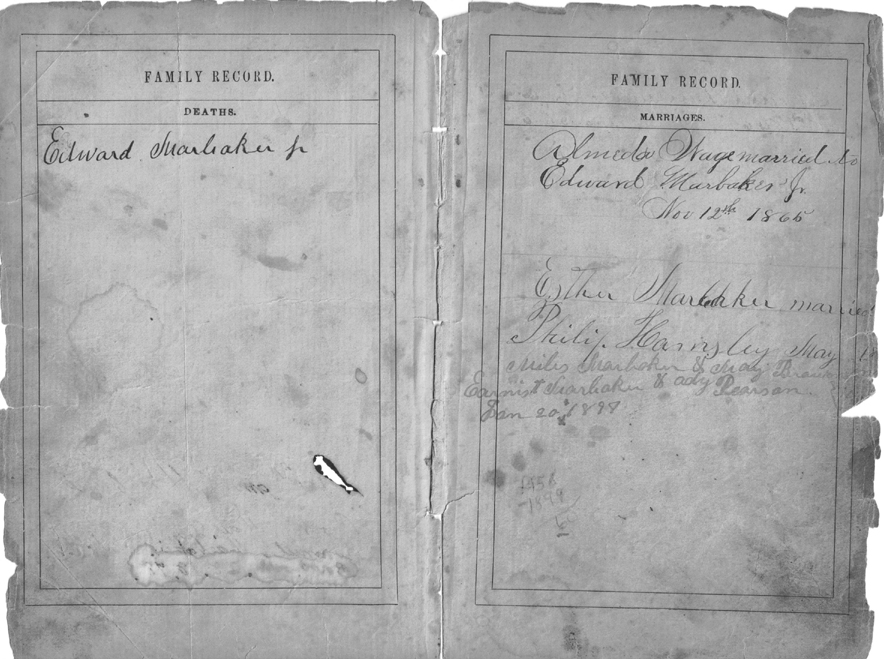 FAMILY RECORD.
DEATHS.
Edward Marbaker jr
FAMILY RECORD.
MARRIAGES.
Almeda Wage married to
Edward Marbaker Jr.
Nov 12th 1865
Esther Marbaker married
Philip Hamsley May
Miles Marbaker & May
Earnist Marbaker & ady Pearson.
Jan 20, 1898
1956
1899